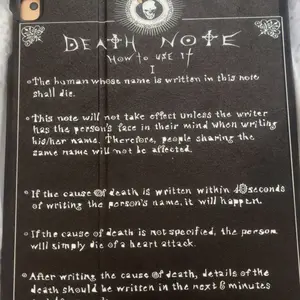 DEATH NOTE
HOW TO USE IT
I
The human whose name is written in this note
shall die.
This note will not take effect unless the writer
has the person's face in their mind when writing
his/her name. Therefore, people sharing the
same name will not be affected.
If the cause of death is written within 40 seconds
of writing the person's name, it will happen.
If the cause of death is not specified, the person
will simply die of a heart attack.
After writing the cause of death, details of the
death should be written in the next 6 minutes